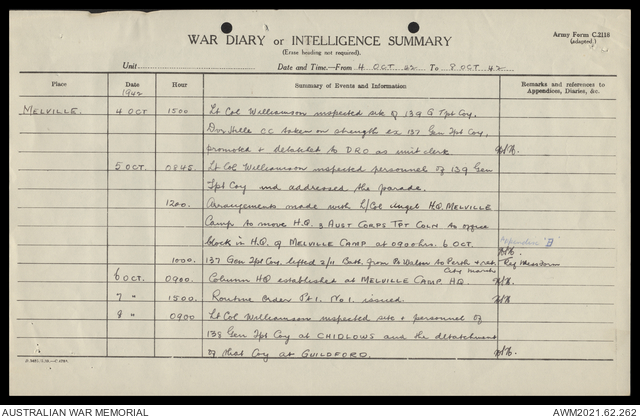 WAR DIARY or INTELLIGENCE SUMMARY
(Erase heading not required).
Army Form C.2118
(adapted.)
Unit
Date and Time—From 4 OCT 42 To 8 OCT 42
Place
Date
Hour
Summary of Events and Information
Remarks and references to
Appendices, Diaries, &c.
1942
MELVILLE.
4 OCT
1500
Lt Col Williamson inspected site of 139 G Tpt Coy.
CC taken on strength ex 137 Gen Tpt Coy,
promoted & detailed to DRO as unit clerk.
5 OCT.
0845
Lt Col Williamson inspected personnel of 139 Gen
Tpt Coy and addressed the parade.
1200
Arrangements made with L/Col Angel H.Q. MELVILLE
Camp to move H.Q. 3 AUST CORPS TPT COLN to office
block in H.Q. of MELVILLE CAMP at 0900 hrs. 6 OCT.
Appendix "B"
1000
137 Gen Tpt Coy. lifted 2/11 Bath. from to Perth & ret.
City March
6 OCT.
0900
Column HQ established at MELVILLE CAMP HQ.
7 "
1500
Routine Order Pt 1. No 1. issued.
8 "
0900
Lt Col Williamson inspected site & personnel of
138 Gen Tpt Coy at CHIDLOWS and the detachment
of that Coy at GUILDFORD.
AUSTRALIAN WAR MEMORIAL
AWM2021.62.262